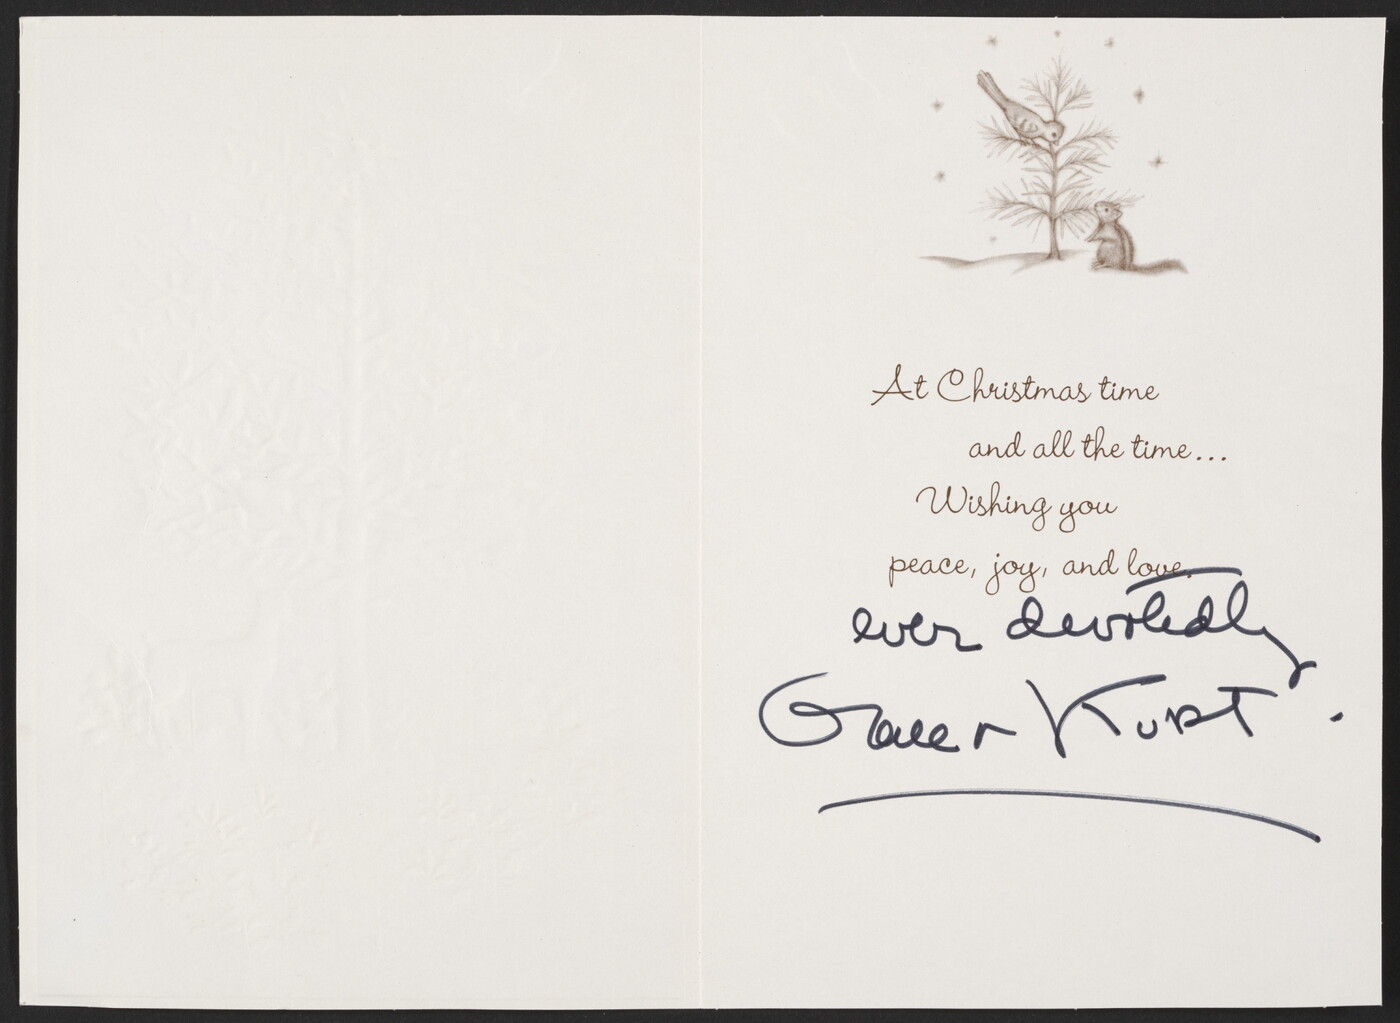 At Christmas time
and all the time...
Wishing you
peace, joy, and love.
ever devotedly
Kurt.